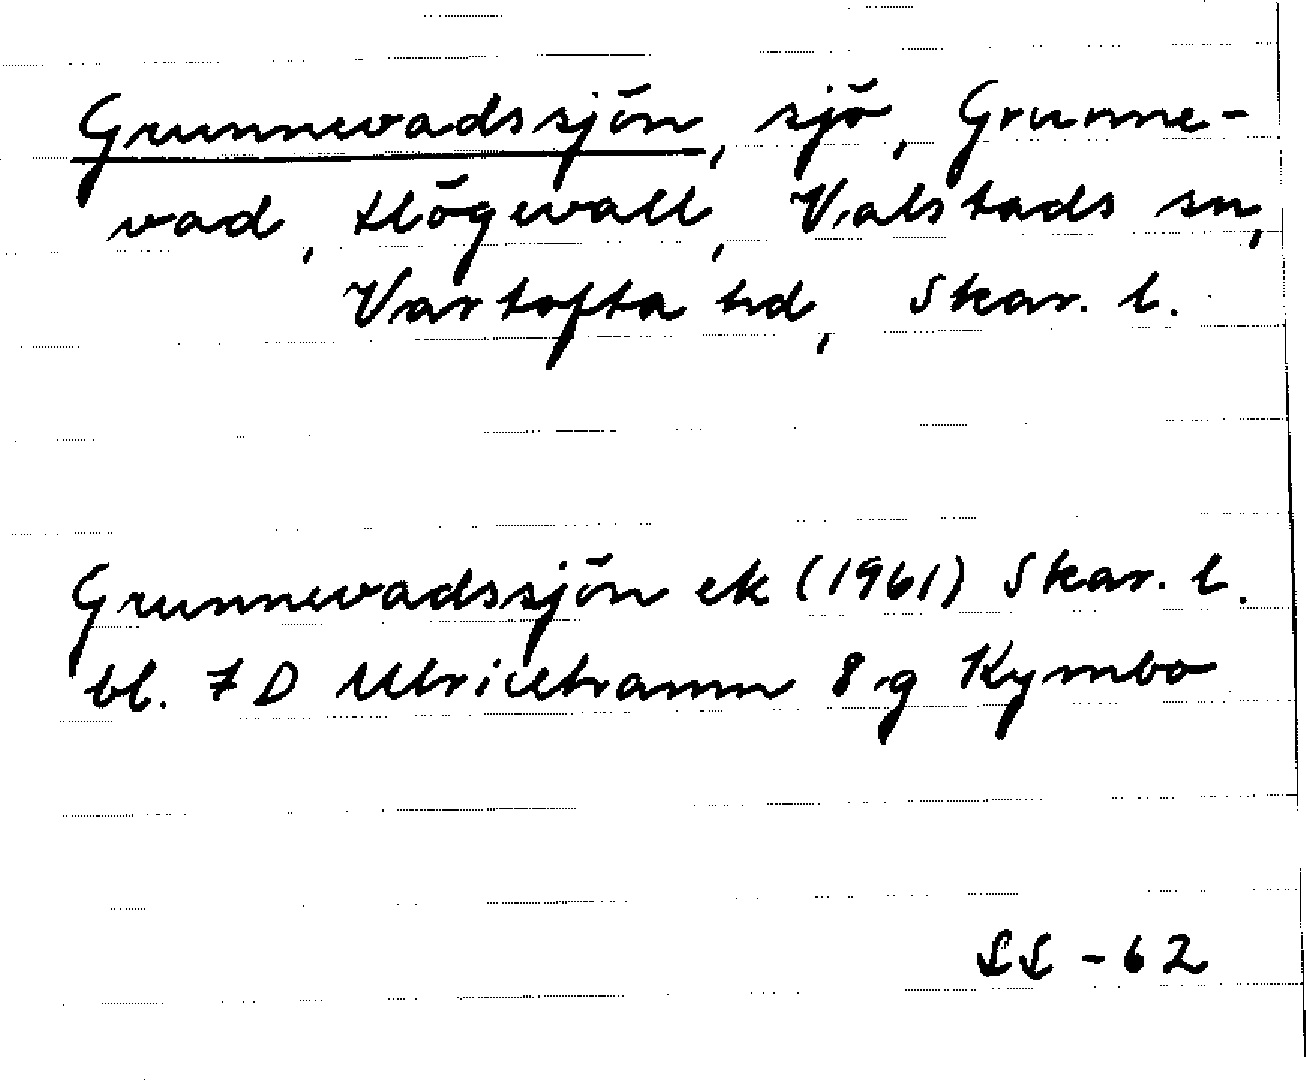 Grunnevadssjön, sjö, Grunne-
vad, Högevall, Valstads sn,
Vartofta hd, Skar. l.
Grunnevadssjön ek (1961) Skar. l.
bl. 7 D Ulricehamn 8 g Kymbo
LL -62